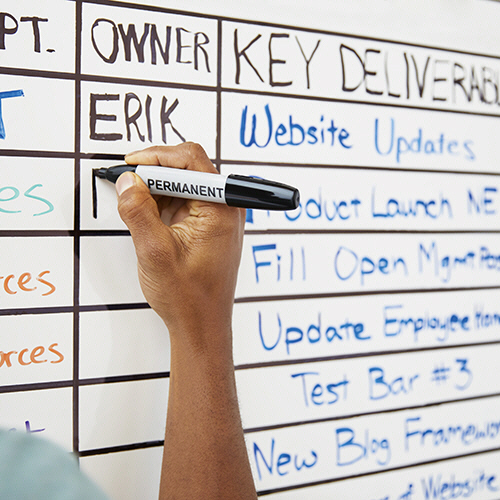 PT. OWNER KEY DELIVERAB
T ERIK Website Updates
es PERMANENT Product Launch NE
rces Fill Open Mgmt Pos
orces Update Employee Han
Test Bar #3
New Blog Framework
Website